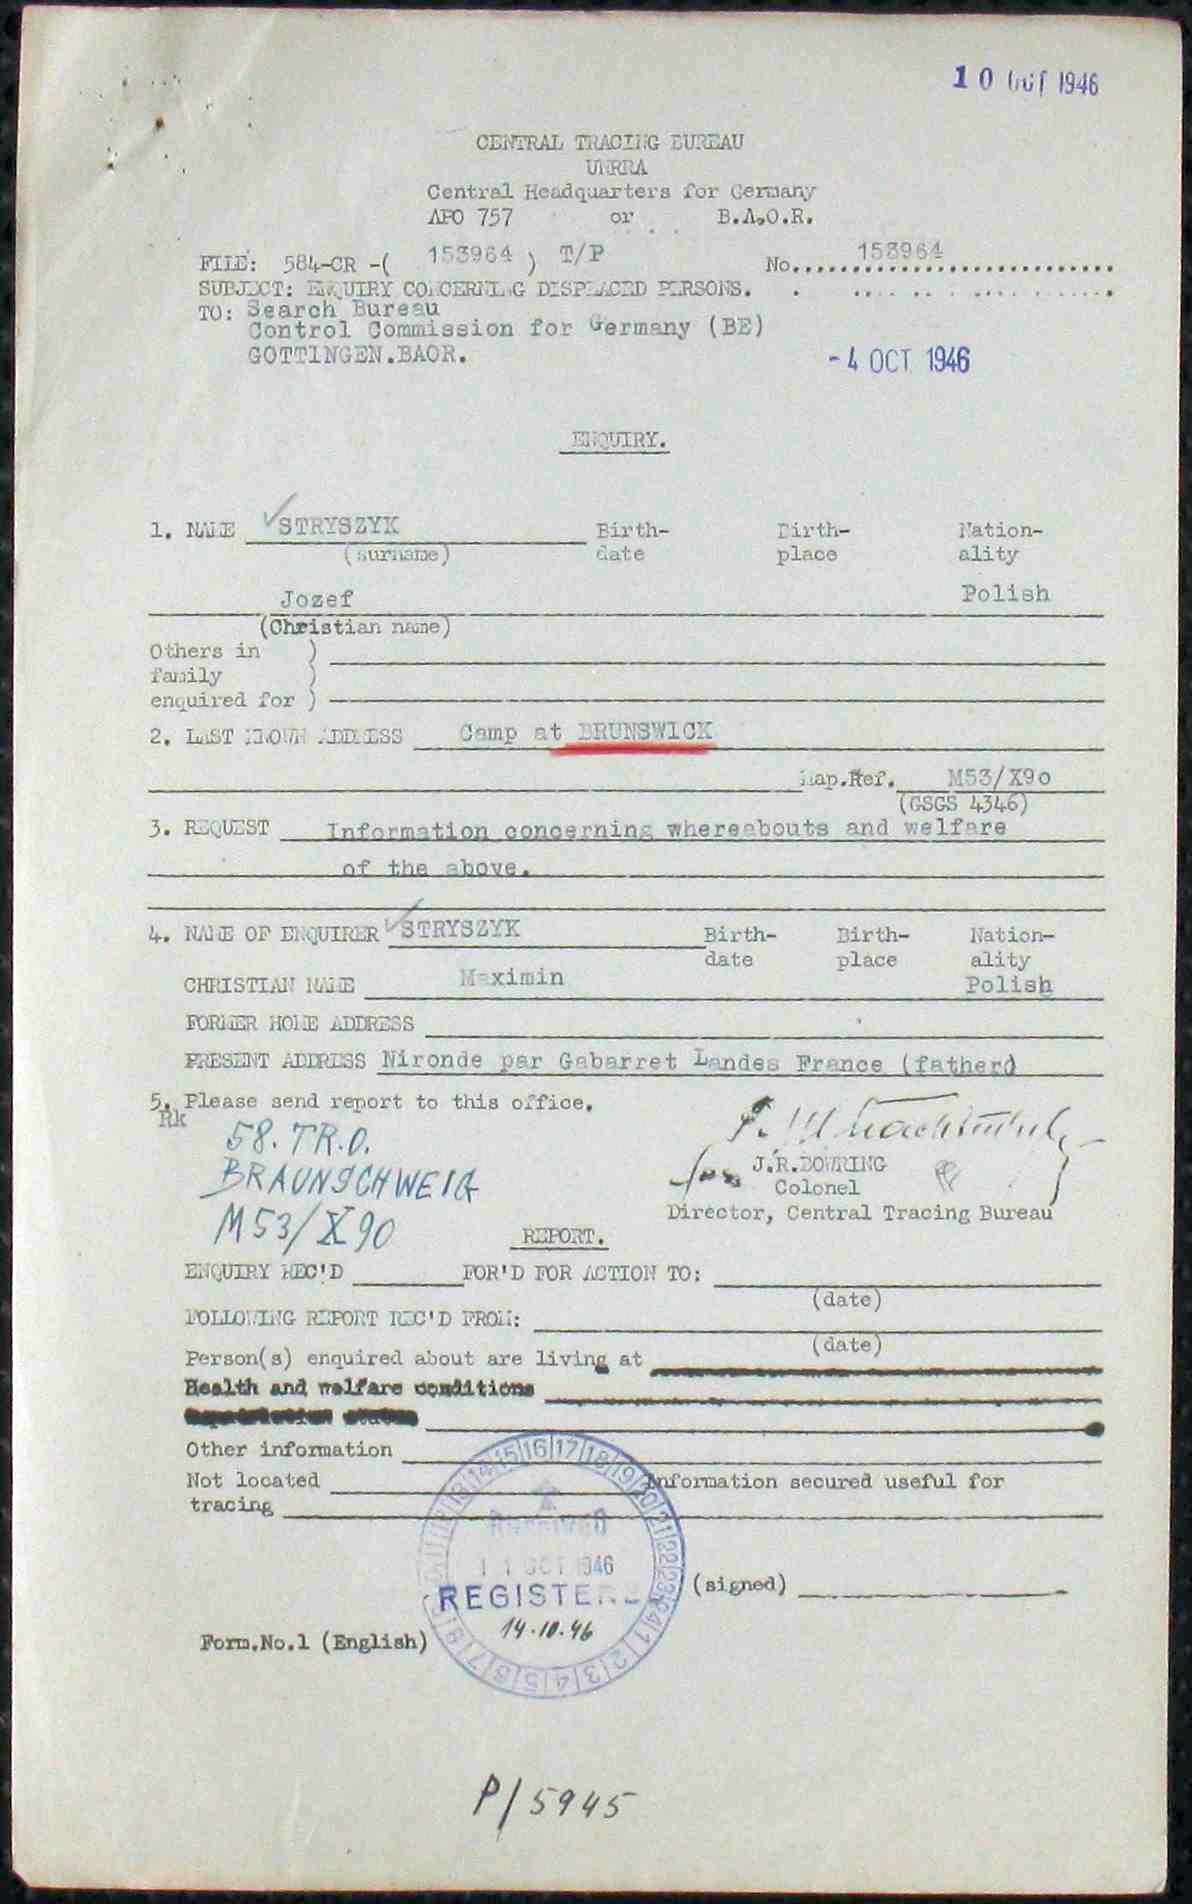 10 OCT 1946
CENTRAL TRACING BUREAU
UNRRA
Central Headquarters for Germany
APO 757 or B.A.O.R.
FILE: 584-CR -( 153964 ) T/P No. 153964
SUBJECT: ENQUIRY CONCERNING DISPLACED PERSONS.
TO: Search Bureau
Control Commission for Germany (BE)
GOTTINGEN.BAOR.
- 4 OCT 1946
ENQUIRY.
1. NAME STRYSZYK Birth- Birth- Nation-
(surname) date place ality
Jozef Polish
(Christian name)
Others in )
family )
enquired for )
2. LAST KNOWN ADDRESS Camp at BRUNSWICK
Map.Ref. M53/X90
(GSGS 4346)
3. REQUEST Information concerning whereabouts and welfare
of the above.
4. NAME OF ENQUIRER STRYSZYK Birth- Birth- Nation-
date place ality
CHRISTIAN NAME Maximin Polish
FORMER HOME ADDRESS
PRESENT ADDRESS Nironde par Gabarret Landes France (father)
5. Please send report to this office.
Rk
58. TR.O.
BRAUNSCHWEIG
M53/X90
for J.R.BOWRING
Colonel
Director, Central Tracing Bureau
REPORT.
ENQUIRY REC'D FOR'D FOR ACTION TO:
(date)
FOLLOWING REPORT REC'D FROM:
(date)
Person(s) enquired about are living at
Health and welfare conditions
Other information
Not located Information secured useful for
tracing
13 14 15 16 17 18 19 20 21 22 23 24 1 2 3 4 5 6 7 8 9
Received
11 OCT 1946
REGISTERED
14.10.46
(signed)
Form.No.1 (English)
P/5945